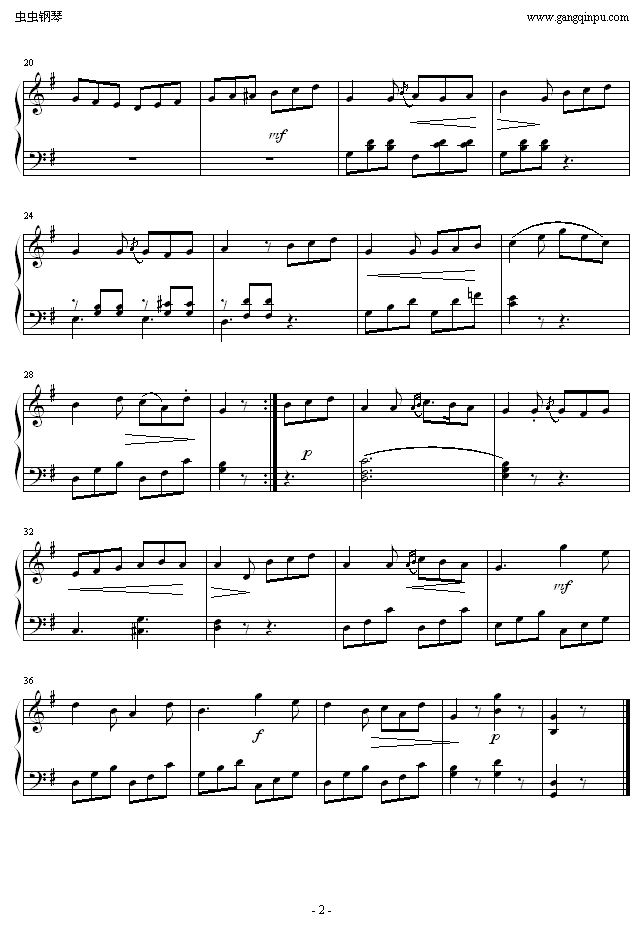 虫虫钢琴 www.gangqinpu.com
20
mf
24
28
p
32
mf
36
f p
- 2 -